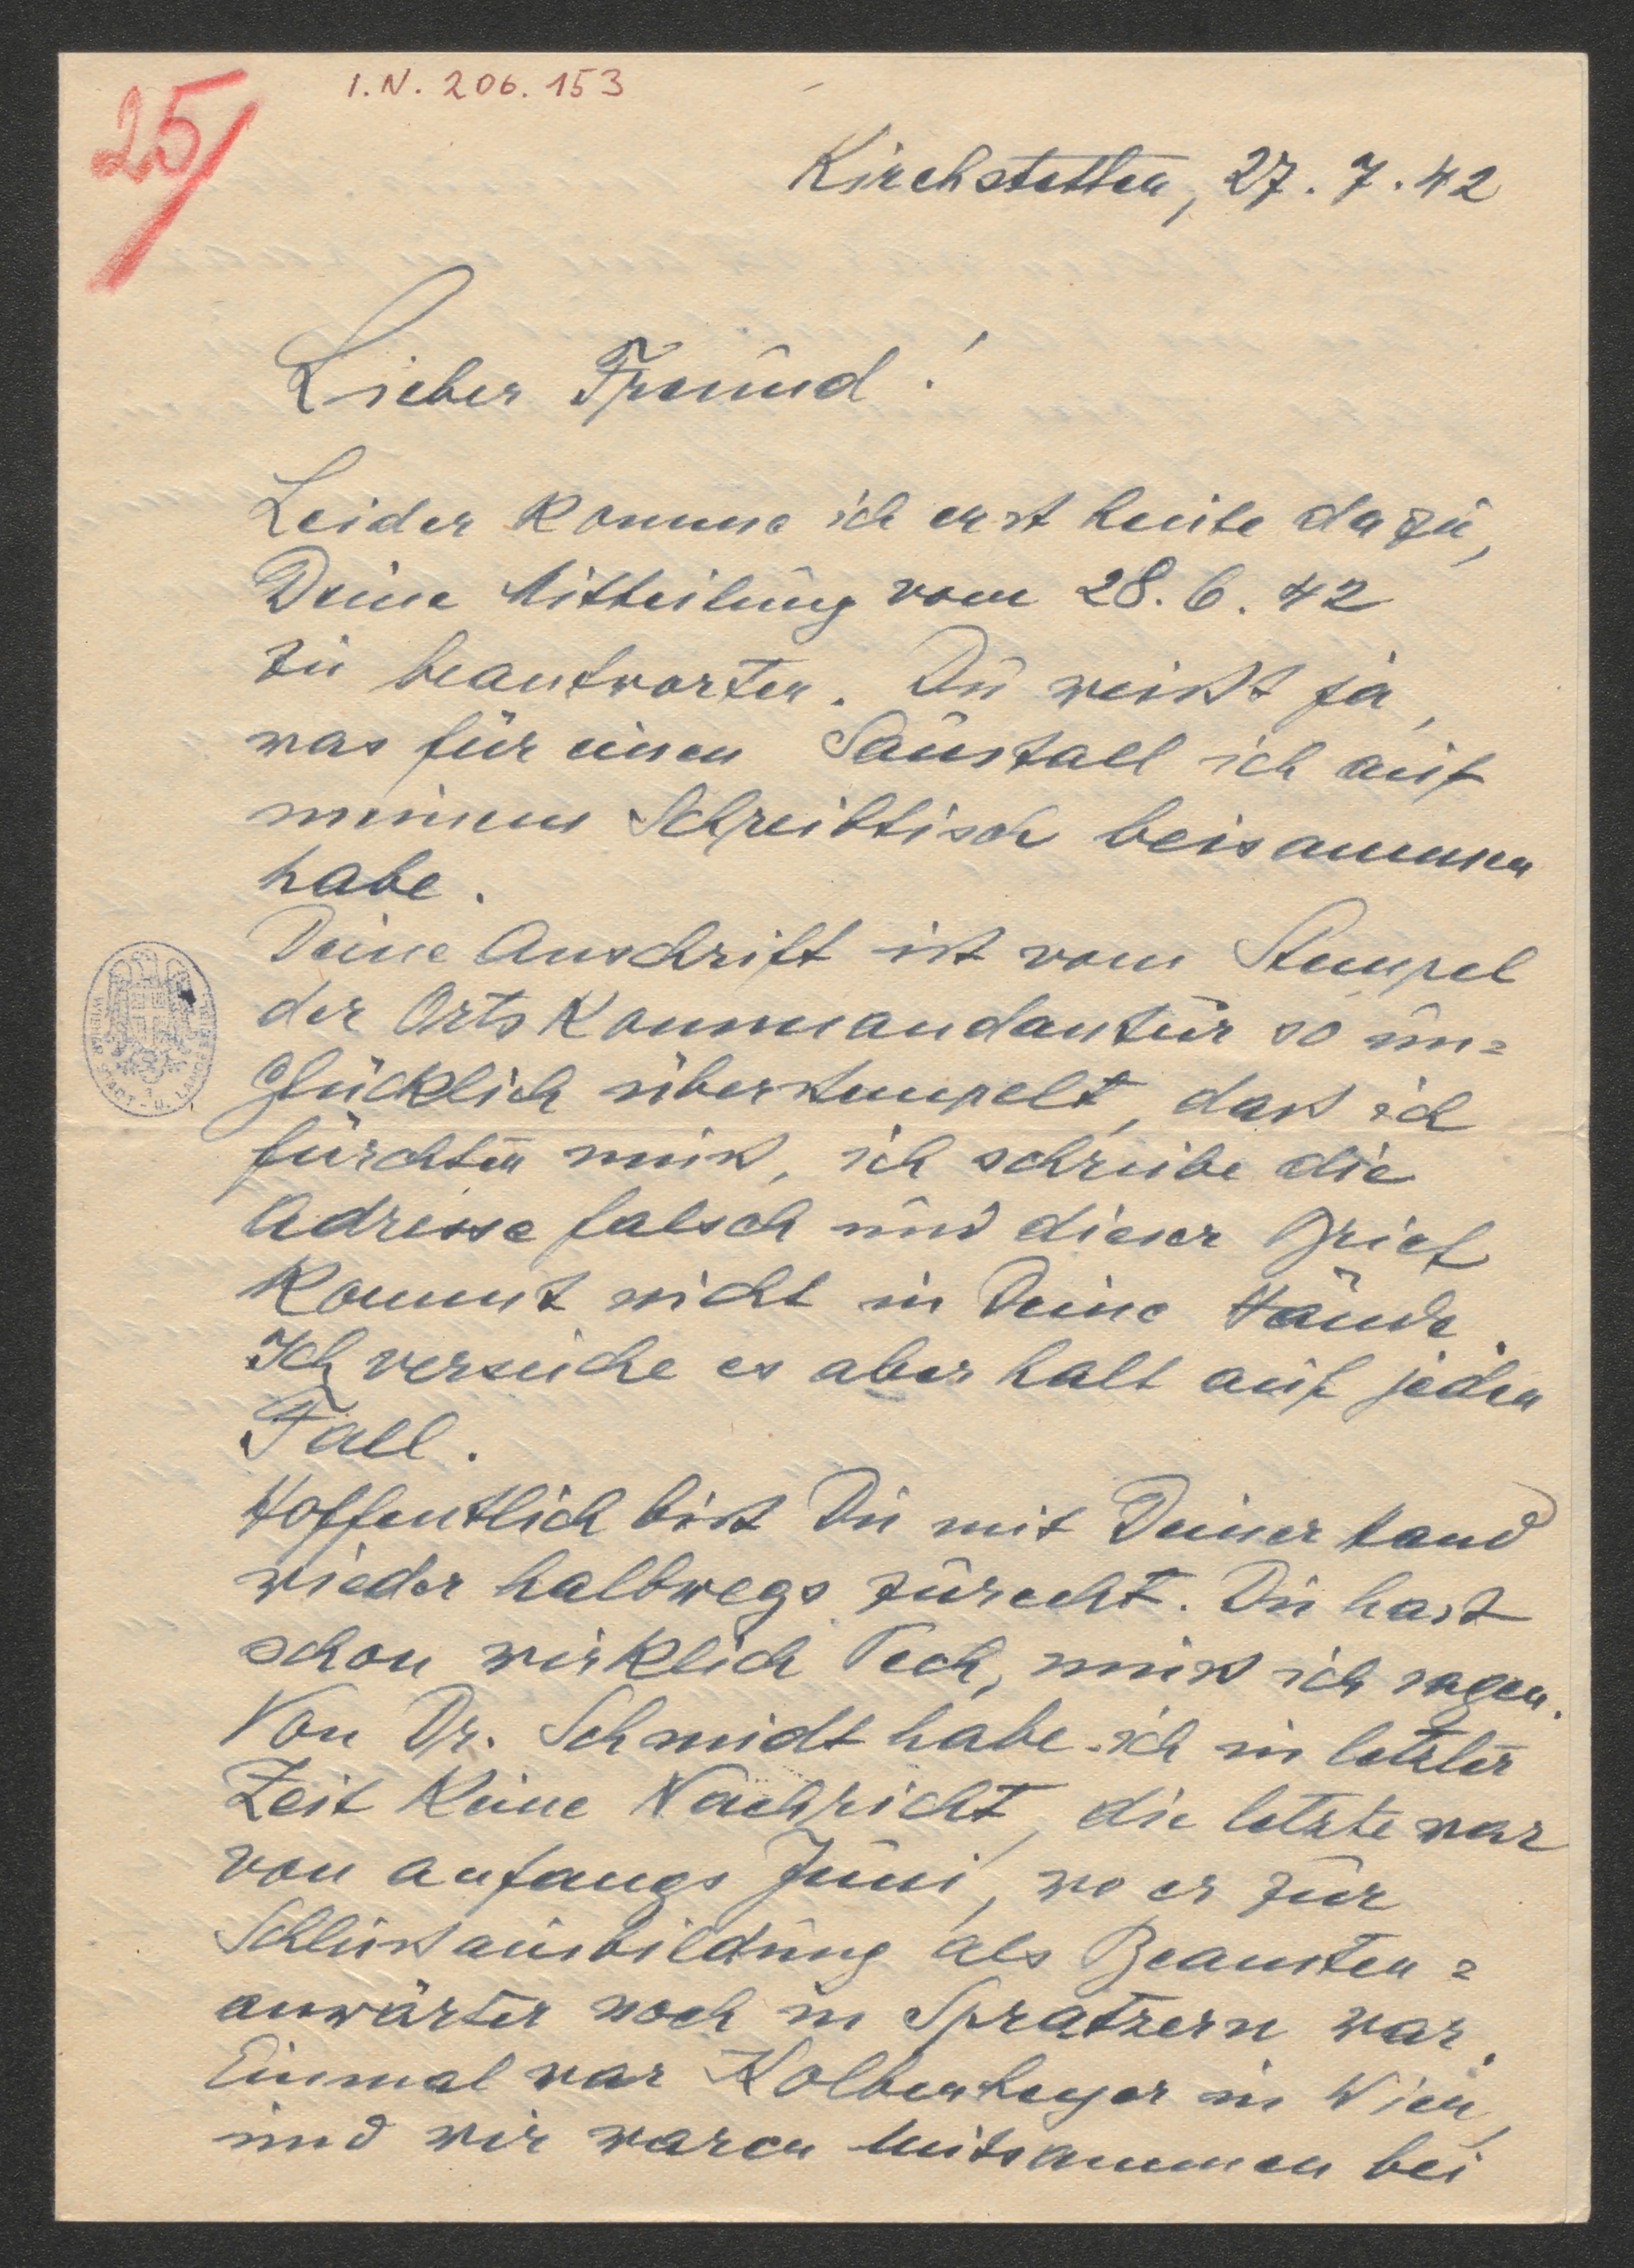 25/
I.N. 206.153
Kirchstetten, 27.7.42
Lieber Freund!
Leider komme ich erst heute dazu,
Deine Mitteilung vom 28.6.42
zu beantworten. Du weißt ja,
was für einen Saustall ich auf
meinem Schreibtisch beisammen
habe.
Deine Anschrift ist vom Stempel
der Ortskommandantur so un=
glücklich überstempelt, daß ich
fürchten muß, ich schreibe die
Adresse falsch und dieser Brief
kommt nicht in Deine Hände.
Ich versuche es aber halt auf jeden
Fall.
Hoffentlich bist Du mit Deiner Hand
wieder halbwegs zurecht. Du hast
schon wirklich Pech, muß ich sagen.
Von Dr. Schmidt habe ich in letzter
Zeit keine Nachricht, die letzte war
von anfangs Juni, wo er zur
Schlußausbildung als Beamten=
anwärter noch in Spratzern war.
Einmal war Kolbenheyer in Wien,
und wir waren mitsammen bei